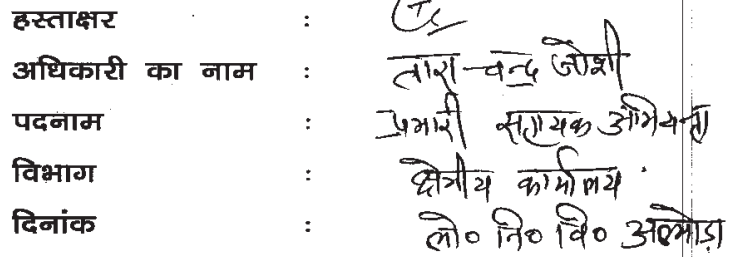 हस्ताक्षर :
अधिकारी का नाम : तारा चन्द्र जोशी
पदनाम : प्रभारी सहायक अभियन्ता
विभाग : क्षेत्रीय कार्यालय
दिनांक : लो० नि० वि० अल्मोड़ा